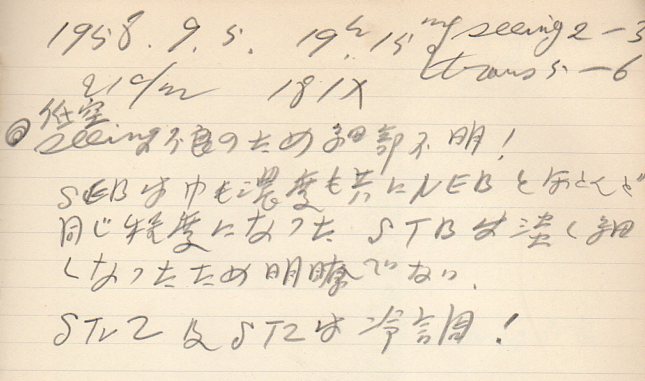 1958. 9. 5. 19h 15m seeing 2-3
trans 5-6
21cm 181X
低空
◎ seeing不良のため細部不明!
SEBは巾も濃度も共にNEBとほとんど
同じ程度になった STBは淡く細
くなったため明瞭でない.
STrZ及STZは冷調!